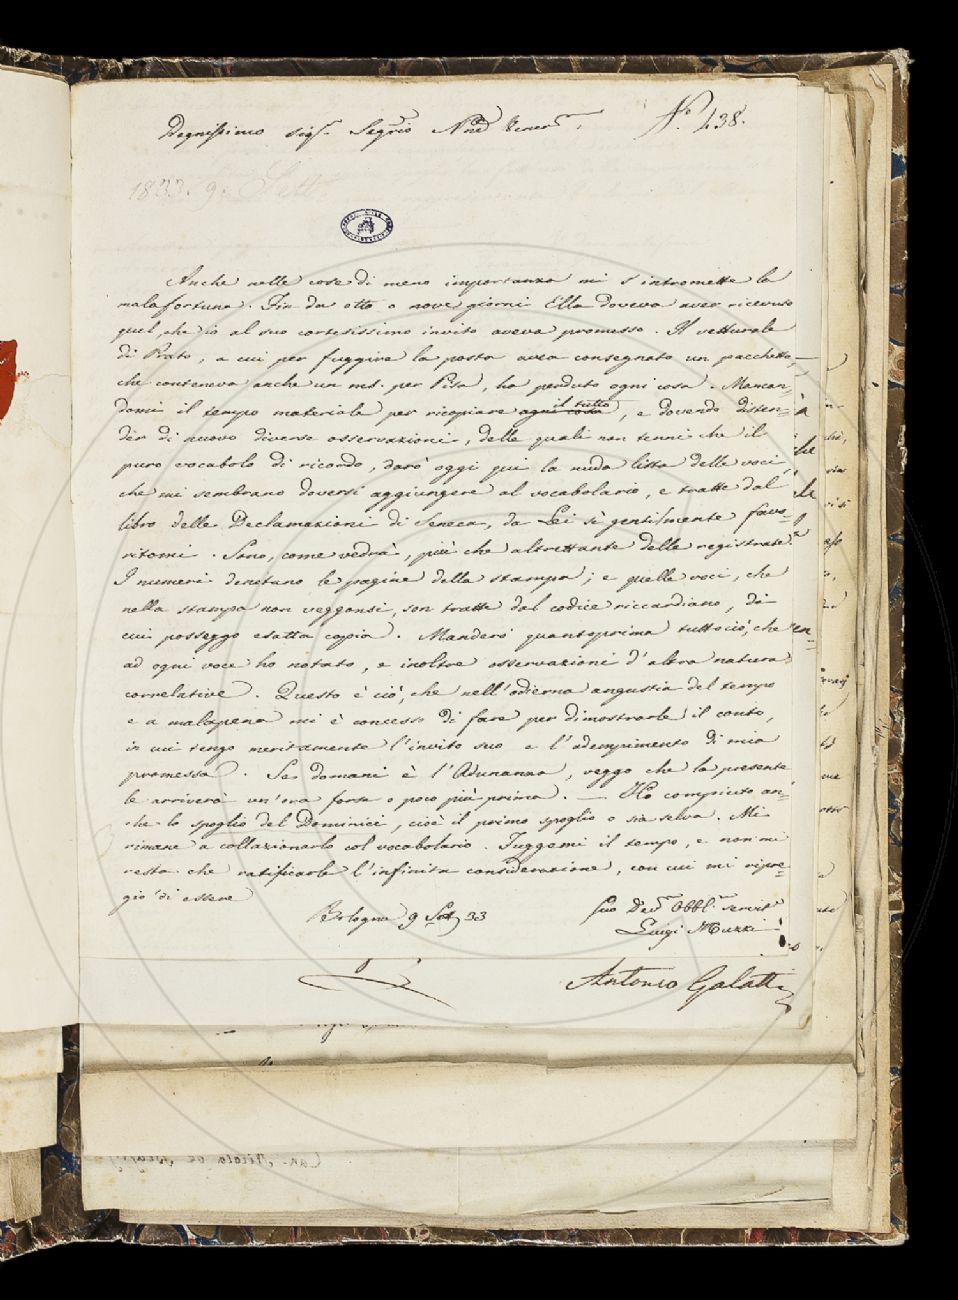 Degnissimo Sig.r Seg.rio N.ro Vener.mo
N.º 438.
1833. 9. Sett.
Anche nelle cose di meno importanza mi s'intromette la
mala fortuna. Fin da otto o nove giorni Ella doveva aver ricevuto
quel, che io al suo cortesissimo invito aveva promesso. Il vetturale
di Prato, a cui per fuggire la posta avea consegnato un pacchetto,
che conteneva anche un ms. per Pisa, ha perduto ogni cosa. Mancan-
domi il tempo materiale per ricopiare ogni cosa il tutto, e dovendo disten-
der di nuovo diverse osservazioni, delle quali non tenni che il
puro vocabolo di ricordo, darò oggi qui la nuda lista delle voci,
che mi sembrano doversi aggiungere al vocabolario, e tratte dal
libro delle Declamazioni di Seneca, da Lei sì gentilmente favo-
ritomi. Sono, come vedrà, più che altrettante delle registrate.
I numeri denotano le pagine della stampa; e quelle voci, che
nella stampa non veggonsi, son tratte dal codice riccardiano, di
cui posseggo esatta copia. Manderò quantoprima tuttociò, che
ad ogni voce ho notato, e inoltre osservazioni d'altra natura
correlative. Questo è ciò, che nell'odierna angustia del tempo
e a malapena mi è concesso di fare per dimostrarle il conto,
in cui tengo meritamente l'invito suo e l'adempimento di mia
promessa. Se domani è l'Adunanza, veggo che la presente
le arriverà un'ora forse o poco più prima. — Ho compiuto an-
che lo spoglio del Dominici, cioè il primo spoglio o sia selva. Mi
rimane a collazionarlo col vocabolario. Fuggemi il tempo, e non mi
resta che ratificarle l'infinita considerazione, con cui mi ripre-
gio di essere
Bologna 9 Sett. 33
Suo Dev.mo Obbl.mo servit.e
Luigi Muzzi
Antonio Galatti